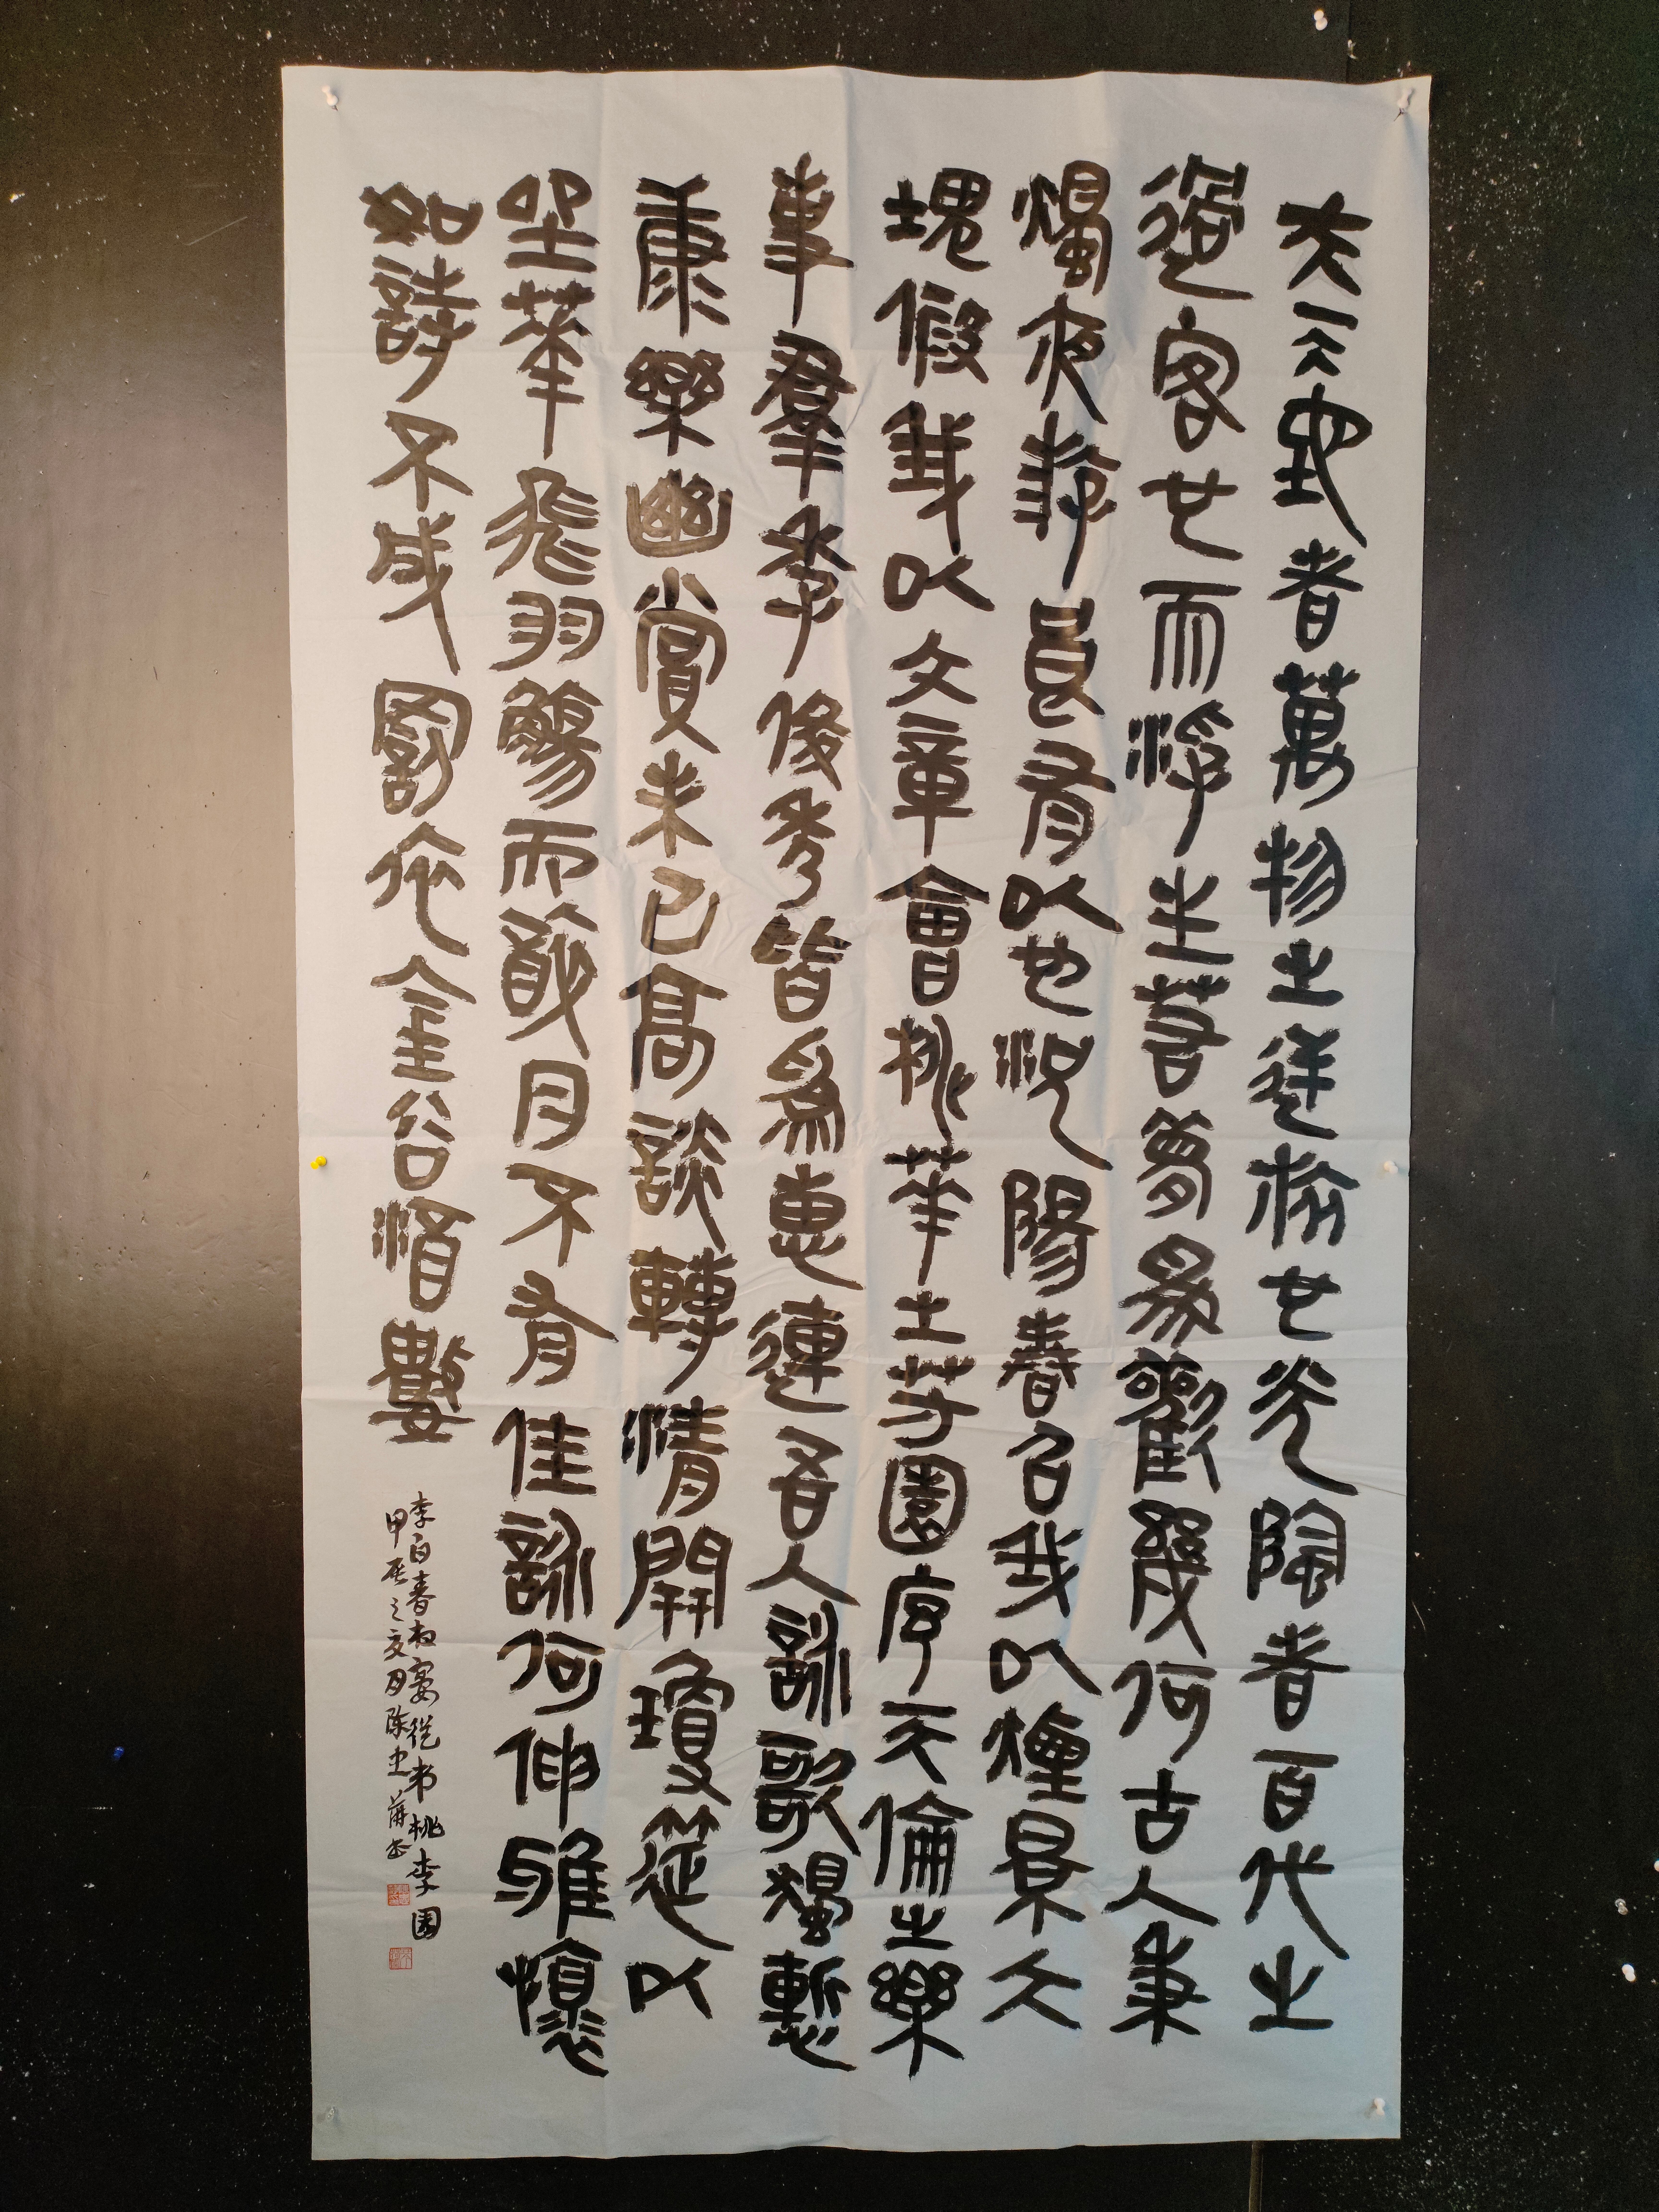 夫天地者萬物之逆旅也光陰者百代之
過客也而浮生若夢爲歡幾何古人秉
燭夜遊良有以也況陽春召我以煙景大
塊假我以文章會桃華之芳園序天倫之樂
事羣季俊秀皆爲惠連吾人詠歌獨慙
康樂幽賞未已高談轉清開瓊筵以
坐華飛羽觴而醉月不有佳詠何伸雅懷
如詩不成罰依金谷酒數
李白春夜宴從弟桃李園
甲辰之夏月陳